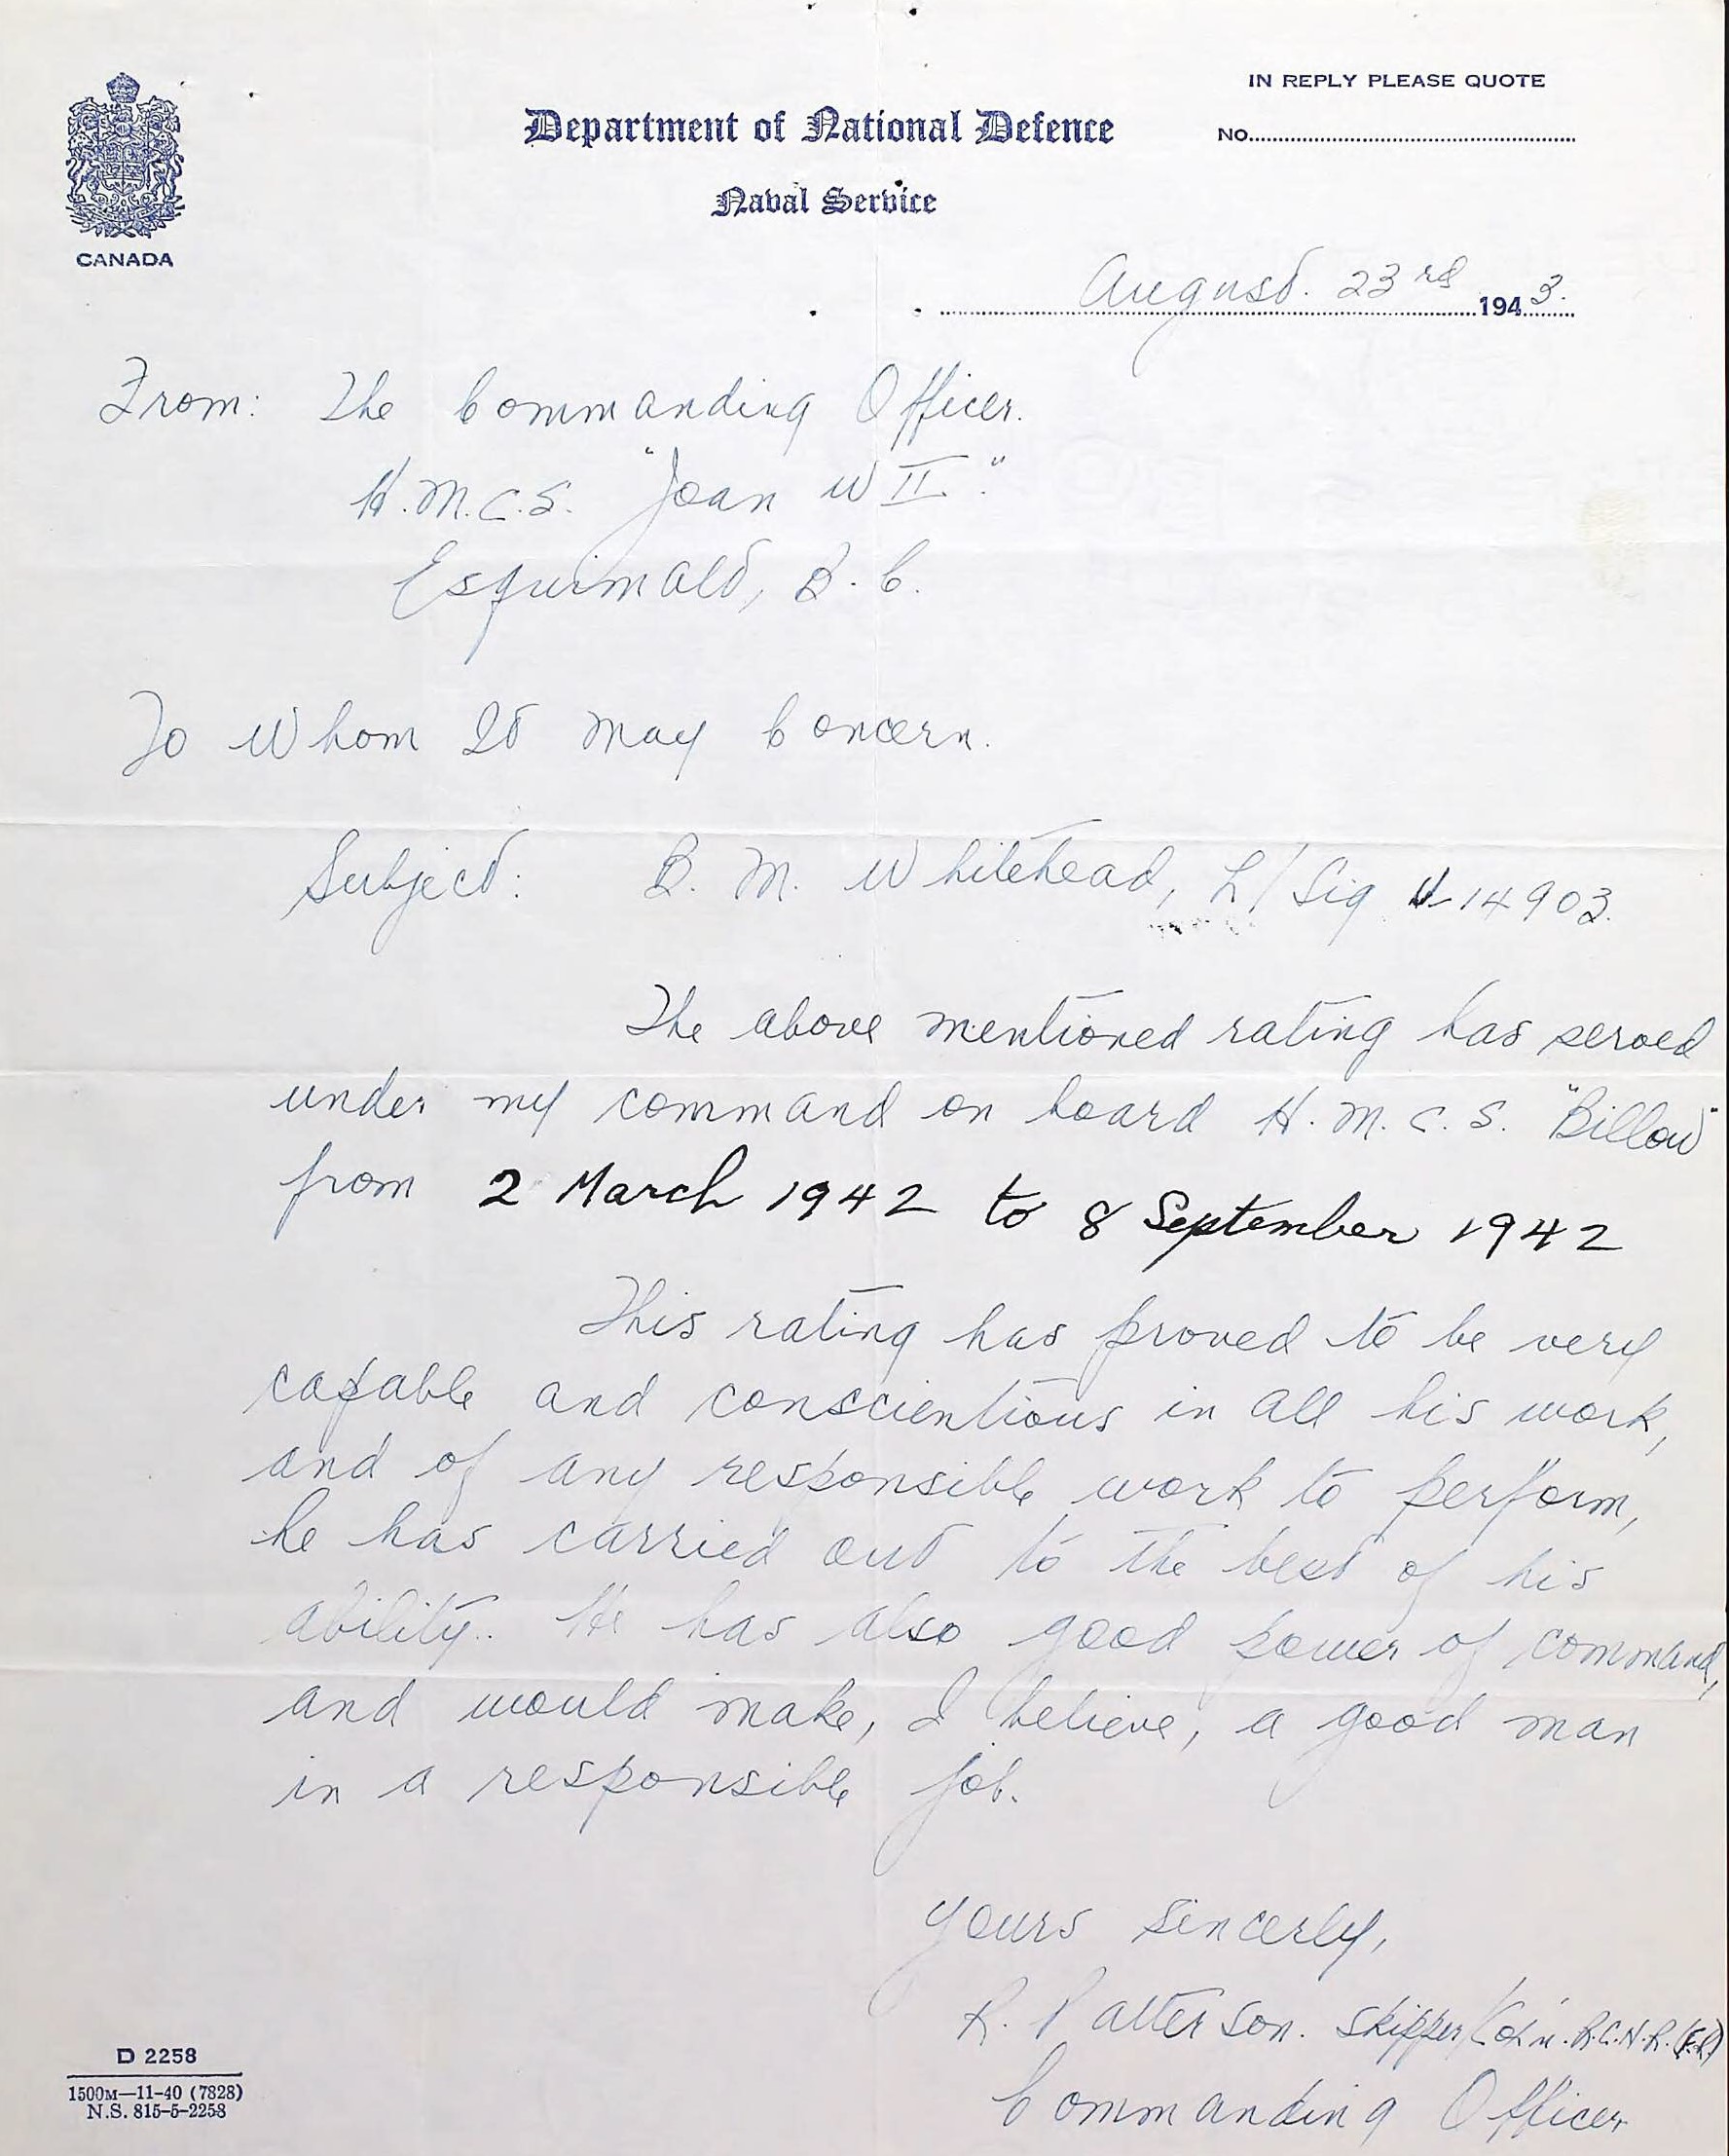 IN REPLY PLEASE QUOTE
Department of National Defence
No.
Naval Service
CANADA
August. 23rd 1943.
From: The Commanding Officer.
H.M.C.S. "Joan W II."
Esquimalt, B.C.
To Whom It May Concern.
Subject: B. M. Whitehead, L/Sig V-14903.
The above mentioned rating has served
under my command on board H.M.C.S. "Billow"
from 2 March 1942 to 8 September 1942
This rating has proved to be very
capable and conscientious in all his work,
and of any responsible work to perform,
he has carried out to the best of his
ability. He has also good power of command,
and would make, I believe, a good man
in a responsible job.
Yours Sincerly,
R. Patterson. Skipper R.C.N.R. (F.R.)
Commanding Officer
D 2258
1500M—11-40 (7828)
N.S. 815-5-2258